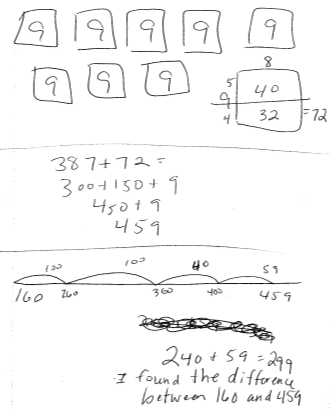 9 9 9 9 9
9 9 9
8
5 40
9
4 32 = 72
387 + 72 =
300 + 150 + 9
450 + 9
459
100 100 40 59
160 260 360 400 459
240 + 59 = 299
I found the difference
between 160 and 459